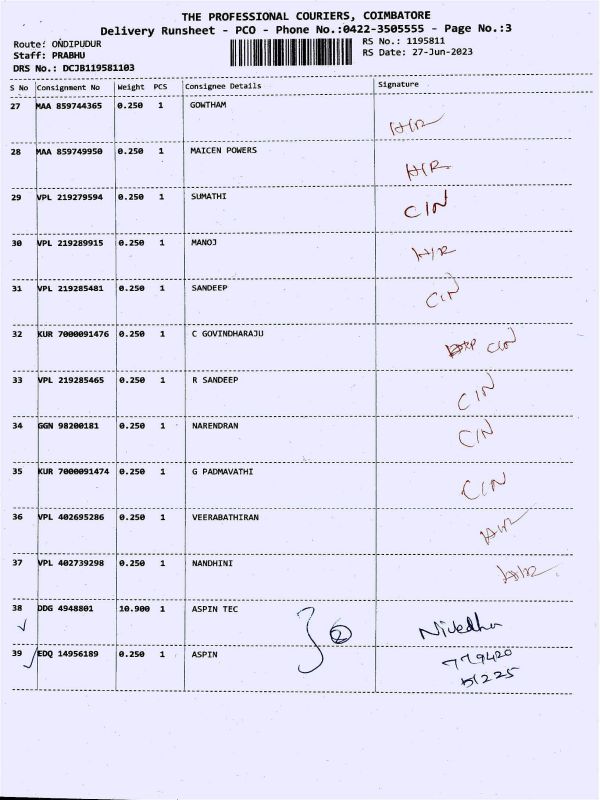 THE PROFESSIONAL COURIERS, COIMBATORE
Delivery Runsheet - PCO - Phone No.:0422-3505555 - Page No.:3
Route: ONDIPUDUR RS No.: 1195811
Staff: PRABHU RS Date: 27-Jun-2023
DRS No.: DCJB119581103
S No Consignment No Weight PCS Consignee Details Signature
27 MAA 859744365 0.250 1 GOWTHAM
H/R
28 MAA 859749950 0.250 1 MAICEN POWERS
H/R
29 VPL 219279594 0.250 1 SUMATHI
CIN
30 VPL 219289915 0.250 1 MANOJ
H/R
31 VPL 219285481 0.250 1 SANDEEP
CIN
32 KUR 7000091476 0.250 1 C GOVINDHARAJU
CIN
33 VPL 219285465 0.250 1 R SANDEEP
CIN
34 GGN 98200181 0.250 1 NARENDRAN
CIN
35 KUR 7000091474 0.250 1 G PADMAVATHI
CIN
36 VPL 402695286 0.250 1 VEERABATHIRAN
H/R
37 VPL 402739298 0.250 1 NANDHINI
H/R
38 DDG 4948801 10.900 1 ASPIN TEC
2 Nivedha
39 EDQ 14956189 0.250 1 ASPIN
779420
51225